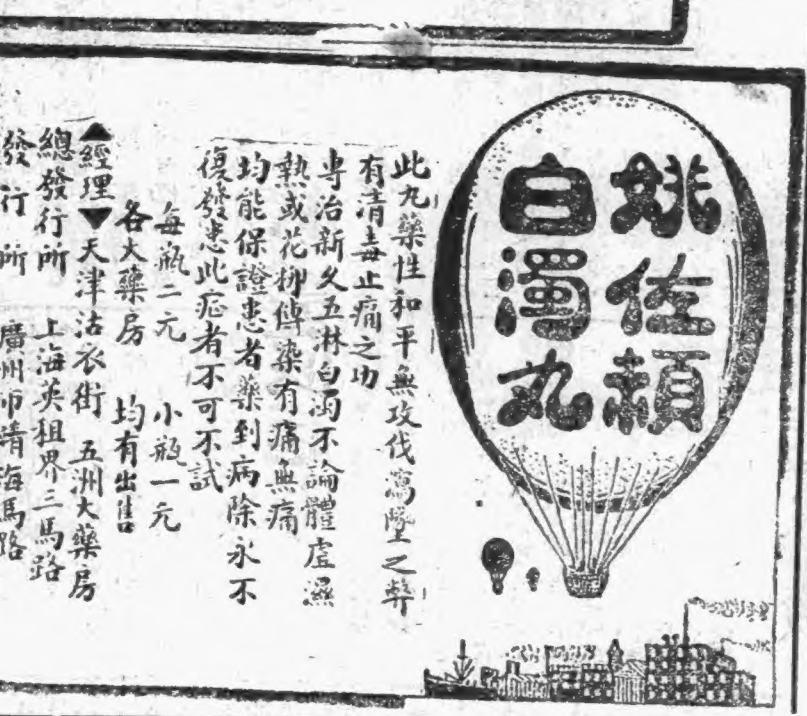 姚佐頓
白濁丸
此丸藥性和平無攻伐瀉墜之弊
有清毒止痛之功
專治新久五淋白濁不論體虛濕
熱或花柳傳染有痛無痛
均能保證患者藥到病除永不
復發患此症者不可不試
每瓶二元 小瓶一元
各大藥房 均有出售
▲經理▼天津沽衣街 五洲大藥房
總發行所 上海英租界三馬路
發行所 廣州市靖海馬路